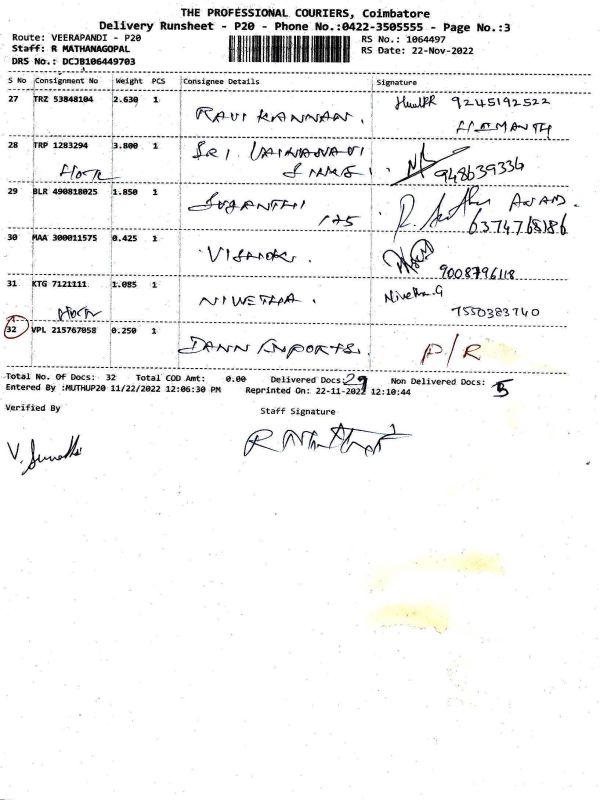 THE PROFESSIONAL COURIERS, Coimbatore
Delivery Runsheet - P20 - Phone No.:0422-3505555 - Page No.:3
Route: VEERAPANDI - P20
RS No.: 1064497
Staff: R MATHANAGOPAL
RS Date: 22-Nov-2022
DRS No.: DCJB106449703
S No Consignment No Weight PCS Consignee Details Signature
27 TRZ 53848104 2.630 1 RAVI KANNAN. 9245192522
HEMANTH
28 TRP 1283294 3.800 1 SRI VAISHNAVI
948639334
29 BLR 490818025 1.850 1 SUGANTHI
125
6374768186
30 MAA 300011575 0.425 1
9008796118
31 KTG 7121111 1.085 1 NIWETHA. Nivetha.G
7550383740
32 VPL 215767058 0.250 1
DANN IMPORTS. P/R
Total No. Of Docs: 32 Total COD Amt: 0.00 Delivered Docs: 29 Non Delivered Docs: 5
Entered By :MUTHUP20 11/22/2022 12:06:30 PM Reprinted On: 22-11-2022 12:10:44
Verified By
Staff Signature